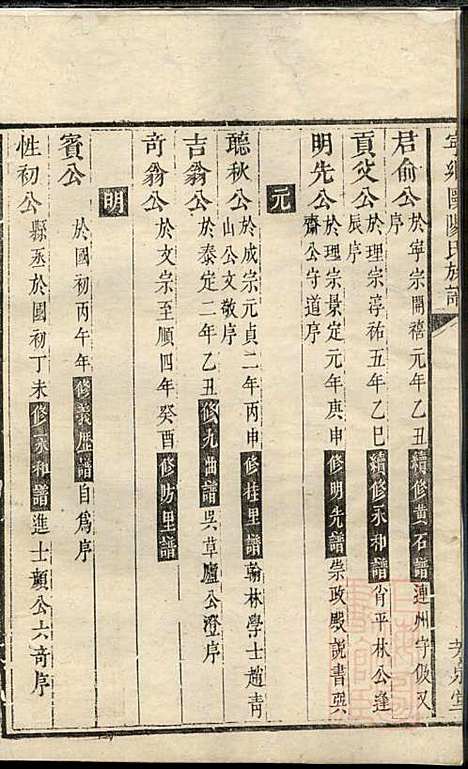 歐陽氏族譜
君俞公 於寧宗開禧元年乙丑續修黃石譜連州守俊又
序
貢父公 於理宗淳祐五年乙巳續修永和譜肖平林公逢
辰序
明先公 於理宗景定元年庚申修明先譜崇政殿說書巽
齋公守道序
元
聽秋公 於成宗元貞二年丙申修桂里譜翰林學士趙青
山公文敬序
吉翁公 於泰定二年乙丑修九曲譜吳草廬公澄序
奇翁公 於文宗至順四年癸酉修防里譜
明
賓公 於國初丙午年修義歷譜自為序
性初公 縣丞於國初丁未修永和譜進士顏公六奇序